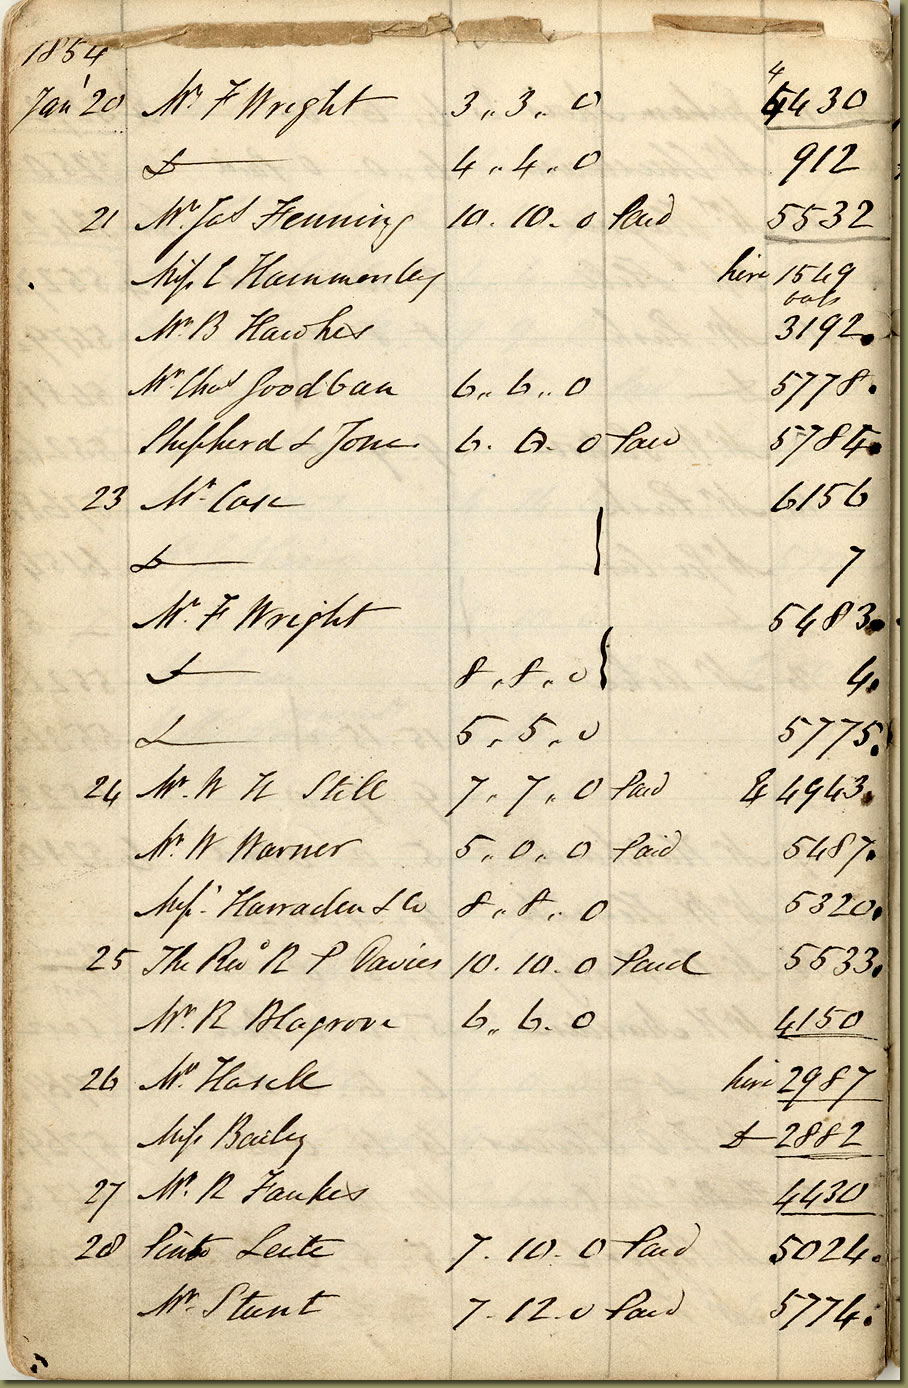 1854
Jany 20 Mr F Wright 3 ,, 3 ,, 0 4 4430
Do 4 ,, 4 ,, 0 912
21 Mr Jas Fenning 10 . 10 . 0 Paid 5532
Miss E Hammersley hire 1549
Mr B Hawkes 3192.
Mr Chas Goodban 6 ,, 6 ,, 0 5778.
Shepherd & Jones 6 . 6 . 0 Paid 5784.
23 Mr Case 6156
Do 7
Mr F Wright 5483.
Do 8 ,, 8 ,, 0 4.
Do 5 ,, 5 ,, 0 5775.
24 Mr W H Still 7 ,, 7 ,, 0 Paid 4943.
Mr W Warner 5 ,, 0 ,, 0 Paid 5487.
Messrs Harraden & Co 8 ,, 8 ,, 0 5320.
25 The Revd R P Davies 10 . 10 . 0 Paid 5533.
Mr R Blagrove 6 ,, 6 . 0 4150
26 Mr Hasell hire 2987
Miss Bailey Do 2882
27 Mr R Faukes 4430
28 Pinto Leite 7 . 10 . 0 Paid 5024.
Mr Stunt 7 . 12 . 0 Paid 5774.